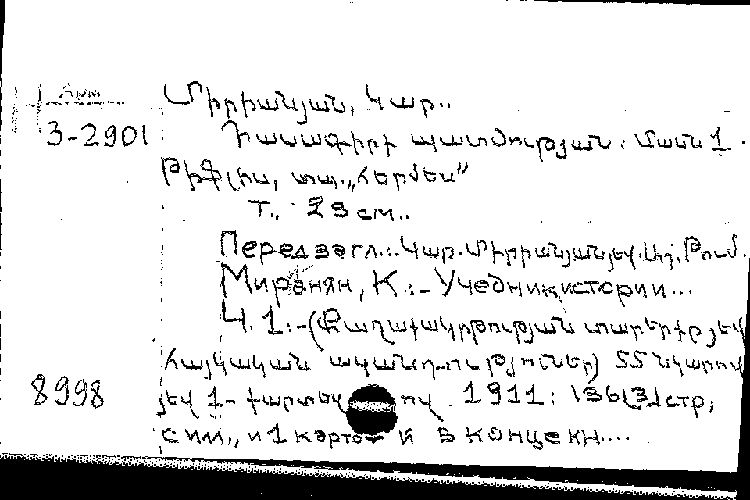 Арм
3-2901
Միրիանյան, Կար..
Դասագիրք պատմության: Մասն 1.
Թիֆլիս, տպ. „Հերմես“
Т., 23 см..
Перед загл.: Կար. Միրիանյան յեվ. Աշ. Թում.
Миранян, К.:- Учебник истории...
Ч. 1:-(Քաղաքակրթության տարերքը յեվ
հայկական ականդություններ) 55 նկարով
8998
յեվ 1- քարտեզով. 1911: 136[3]стр,
с илл., и 1 карто й в конце кн....